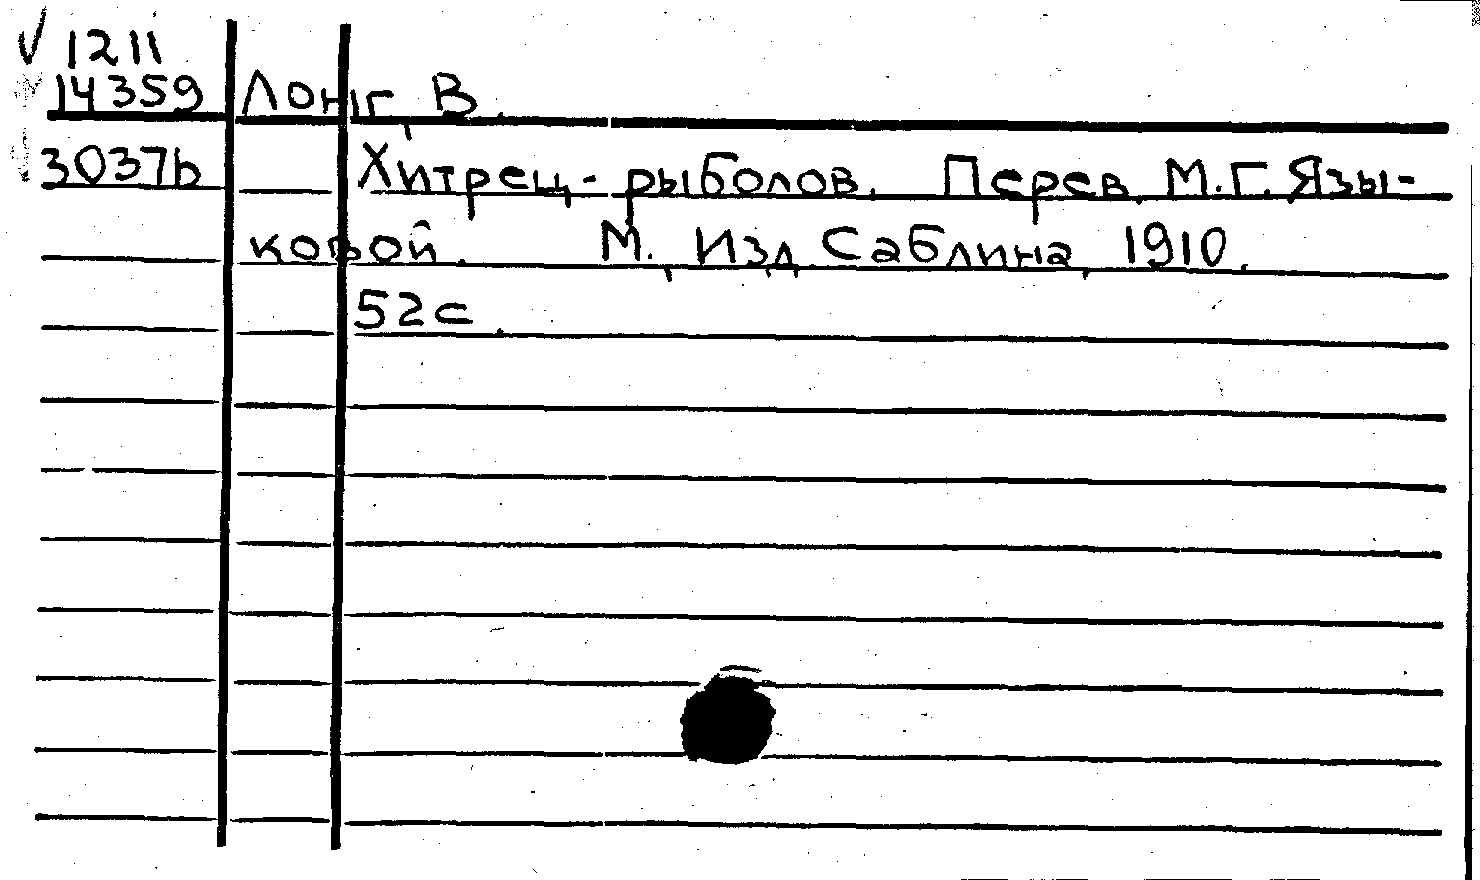 V 1211
14359 Лонг, В.
3037b Хитрец-рыболов. Перев. М.Г. Язы-
ковой. М., Изд. Саблина, 1910.
52с.